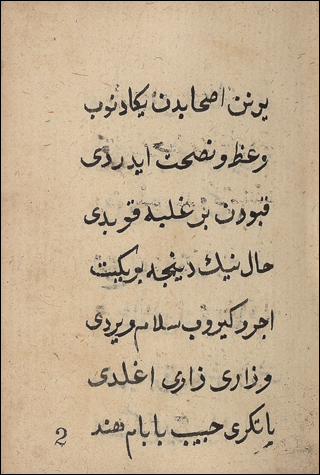 یرنن اصحابدن یکادنوب
وعظ ونصحت ایدردی
قپودن بر غلبه قوپدی
حال نیك دینجه بر یکیت
اجرو کیروب سلام ویردی
وزاری زاری اغلدی
یا تکری حبیب یا بابام
2